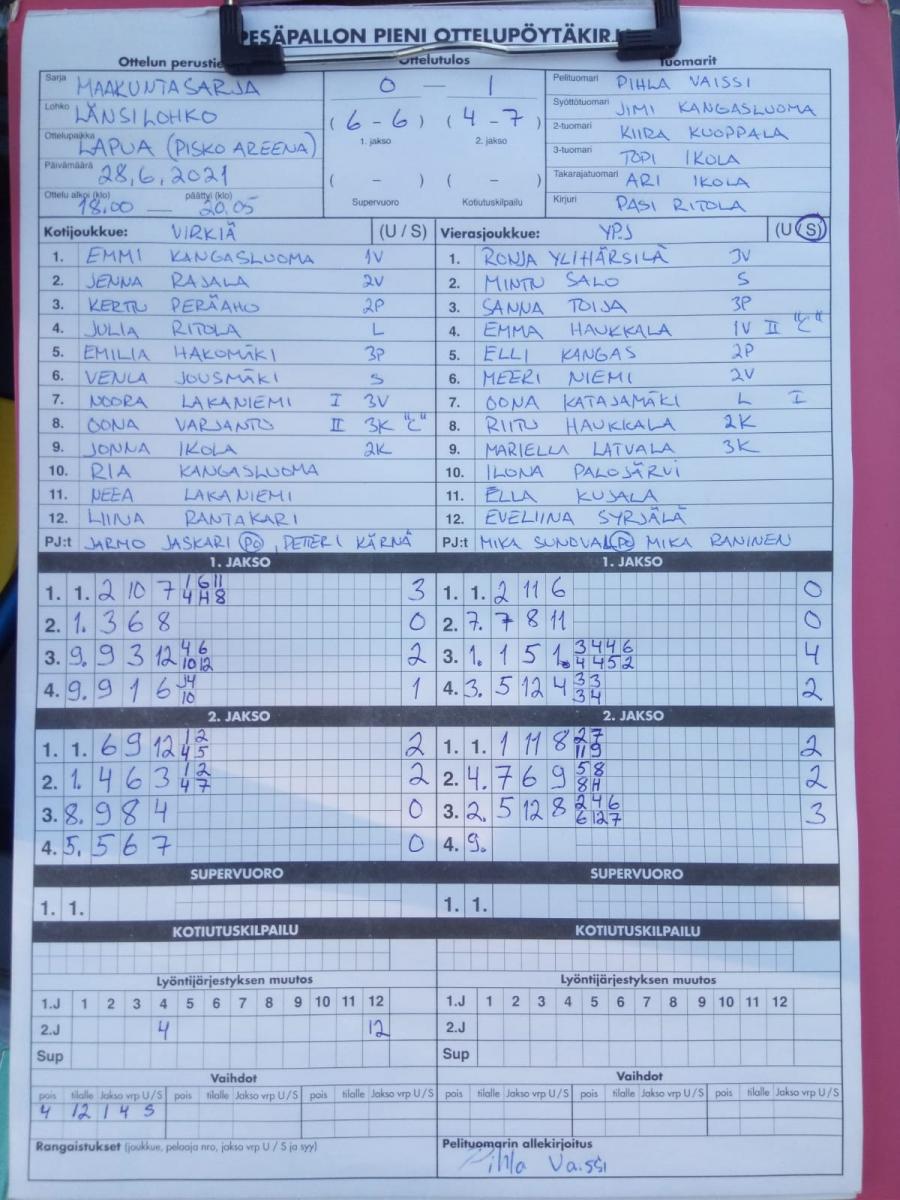 PESÄPALLON PIENI OTTELUPÖYTÄKIRJ
Ottelun perustie
Ottelutulos
Tuomarit
Sarja MAAKUNTASARJA
Lohko LÄNSILOHKO
Ottelupaikka LAPUA (PISKO AREENA)
Päivämäärä 28.6.2021
Ottelu alkoi (klo) päättyi (klo)
18.00 — 20.05
0 — 1
( 6 - 6 ) ( 4 - 7 )
1. jakso 2. jakso
( - ) ( - )
Supervuoro Kotiutuskilpailu
Pelituomari PIHLA VAISSI
Syöttötuomari JIMI KANGASLUOMA
2-tuomari KIIRA KUOPPALA
3-tuomari TOPI IKOLA
Takarajatuomari ARI IKOLA
Kirjuri PASI RITOLA
Kotijoukkue: VIRKIÄ (U / S)
1. EMMI KANGASLUOMA 1V
2. JENNA RAJALA 2V
3. KERTTU PERÄAHO 2P
4. JULIA RITOLA L
5. EMILIA HAKOMÄKI 3P
6. VENLA JOUSMÄKI S
7. NOORA LAKANIEMI I 3V
8. OONA VARJANTO II 3K "C"
9. JONNA IKOLA 2K
10. RIA KANGASLUOMA
11. NEEA LAKANIEMI
12. LIINA RANTAKARI
PJ:t JARMO JASKARI PO, PETERI KÄRNÄ
Vierasjoukkue: YPJ (U / S)
1. RONJA YLIHÄRSILÄ 3V
2. MINTU SALO S
3. SANNA TOIJA 3P
4. EMMA HAUKKALA 1V II "C"
5. ELLI KANGAS 2P
6. MEERI NIEMI 2V
7. OONA KATAJAMÄKI L I
8. RIITU HAUKKALA 2K
9. MARIELLA LATVALA 3K
10. ILONA PALOJÄRVI
11. ELLA KUJALA
12. EVELIINA SYRJÄLÄ
PJ:t MIKA SUNDVALL MIKA RANINEN
1. JAKSO
1. 1. 2 10 7 1 6 11 3
4 11 8
2. 1. 3 6 8 0
3. 9. 9 3 12 4 6 2
10 12
4. 9. 9 1 6 1
10
1. JAKSO
1. 1. 2 11 6 0
2. 7. 7 8 11 0
3. 1. 1 5 1. 3 4 4 6 4
4 4 5 2
4. 3. 5 12 4 3 3 2
3 4
2. JAKSO
1. 1. 6 9 12 1 2 2
4 5
2. 1. 4 6 3 1 2 2
4 7
3. 8. 9 8 4 0
4. 5. 5 6 7 0
2. JAKSO
1. 1. 1 11 8 2 7 2
11 9
2. 4. 7 6 9 5 8 2
8 11
3. 2. 5 12 8 2 4 6 3
6 12 7
4. 9.
SUPERVUORO
1. 1.
SUPERVUORO
1. 1.
KOTIUTUSKILPAILU
KOTIUTUSKILPAILU
Lyöntijärjestyksen muutos
1.J 1 2 3 4 5 6 7 8 9 10 11 12
2.J 4 12
Sup
Lyöntijärjestyksen muutos
1.J 1 2 3 4 5 6 7 8 9 10 11 12
2.J
Sup
Vaihdot
pois tilalle Jakso vrp U/S pois tilalle Jakso vrp U/S pois tilalle Jakso vrp U/S
4 12 1 4 S
Vaihdot
pois tilalle Jakso vrp U/S pois tilalle Jakso vrp U/S pois tilalle Jakso vrp U/S
Rangaistukset (joukkue, pelaaja nro, jakso vrp U / S ja syy)
Pelituomarin allekirjoitus
Pihla Vaissi